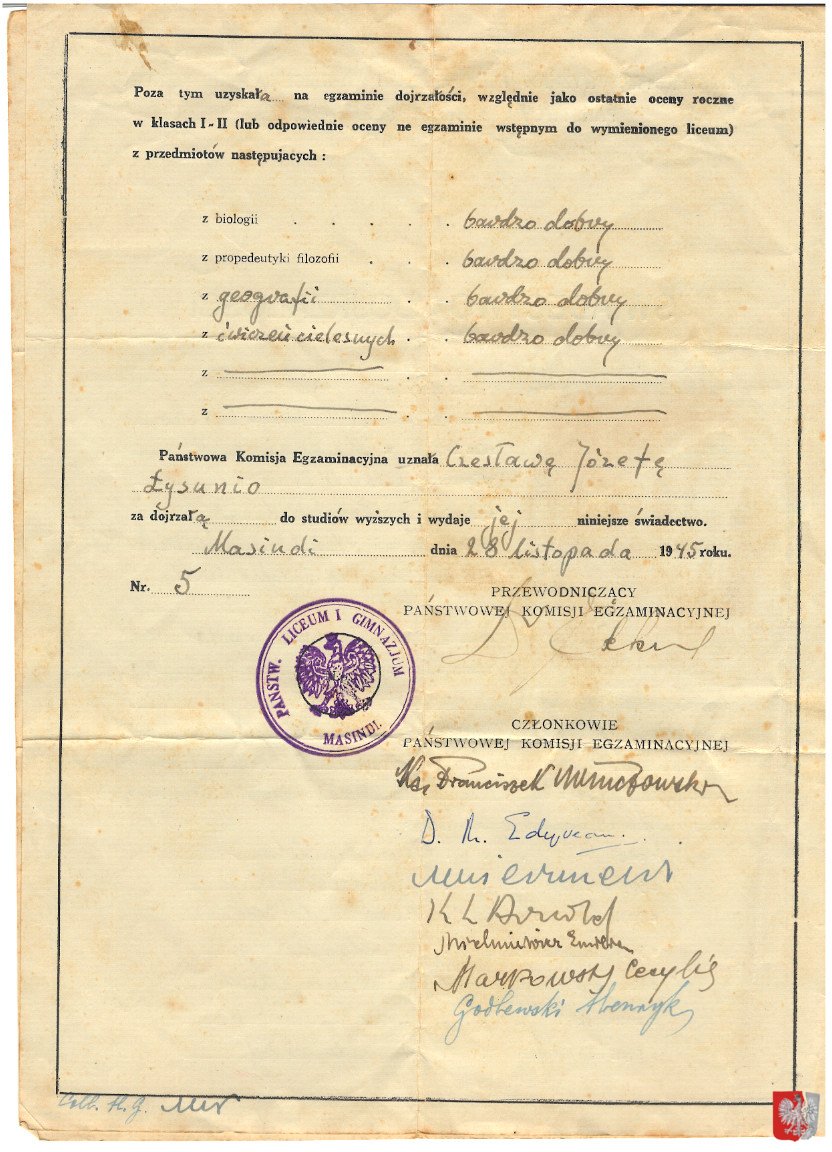 Poza tym uzyskała na egzaminie dojrzałości, względnie jako ostatnie oceny roczne
w klasach I - II (lub odpowiednie oceny ne egzaminie wstępnym do wymienionego liceum)
z przedmiotów następujacych :
z biologii . . . . . bardzo dobry
z propedeutyki filozofii . . . bardzo dobry
z geografii . . bardzo dobry
z ćwiczeń cielesnych . . bardzo dobry
z . .
z . .
Państwowa Komisja Egzaminacyjna uznała Czesławę Józefę
Łysunio
za dojrzałą do studiów wyższych i wydaje jej niniejsze świadectwo.
Masindi dnia 28 listopada 1945 roku.
Nr. 5
PRZEWODNICZĄCY
PAŃSTWOWEJ KOMISJI EGZAMINACYJNEJ
PAŃSTW. LICEUM I GIMNAZJUM
MASINDI
CZŁONKOWIE
PAŃSTWOWEJ KOMISJI EGZAMINACYJNEJ
Ks. Franciszek
D. M.
K L Arnold
Markowski Cecylia
Godlewski Henryk
Coll. H. G.